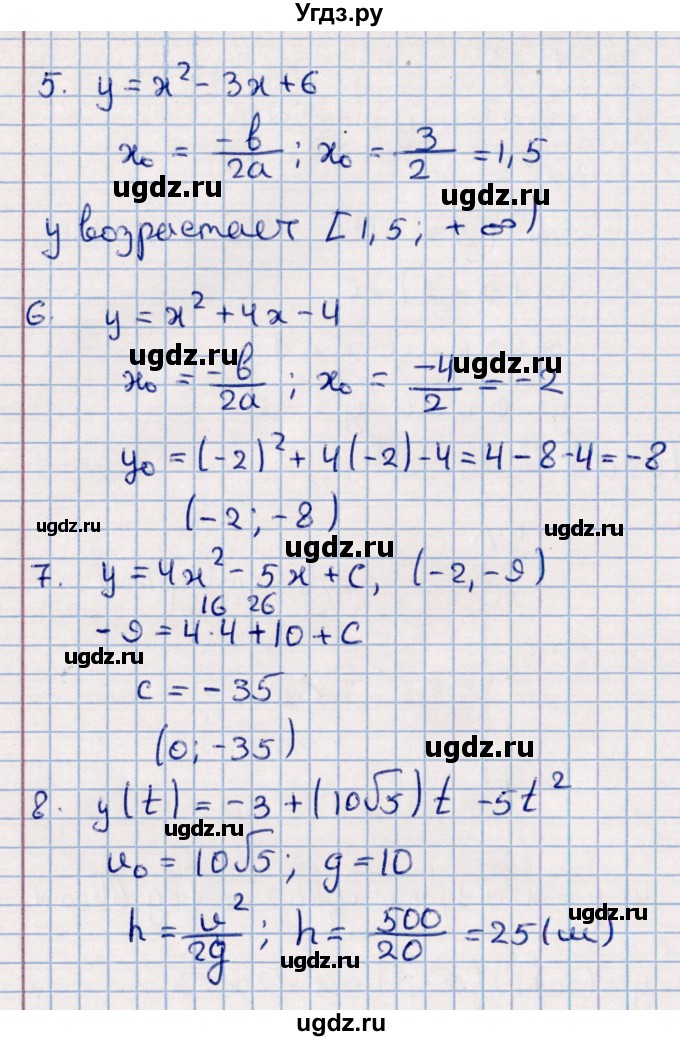 Угдз.ру
5. y = x² - 3x + 6
x₀ = -в/2a ; x₀ = 3/2 = 1,5
ugdz.ru ugdz.ru
y возрастает [1,5; +∞)
6. y = x² + 4x - 4
ugdz.ru ugdz.ru
x₀ = -в/2a ; x₀ = -4/2 = -2
y₀ = (-2)² + 4(-2) - 4 = 4 - 8 - 4 = -8
(-2; -8)
ugdz.ru ugdz.ru ugdz.ru
7. y = 4x² - 5x + c, (-2, -9)
16 26
-9 = 4·4 + 10 + c
ugdz.ru
c = -35
(0; -35)
ugdz.ru
8. y(t) = -3 + (10√5)t - 5t²
ugdz.ru
v₀ = 10√5; g = 10
h = v²/2g ; h = 500/20 = 25 (м)
ugdz.ru ugdz.ru
ugdz.ru